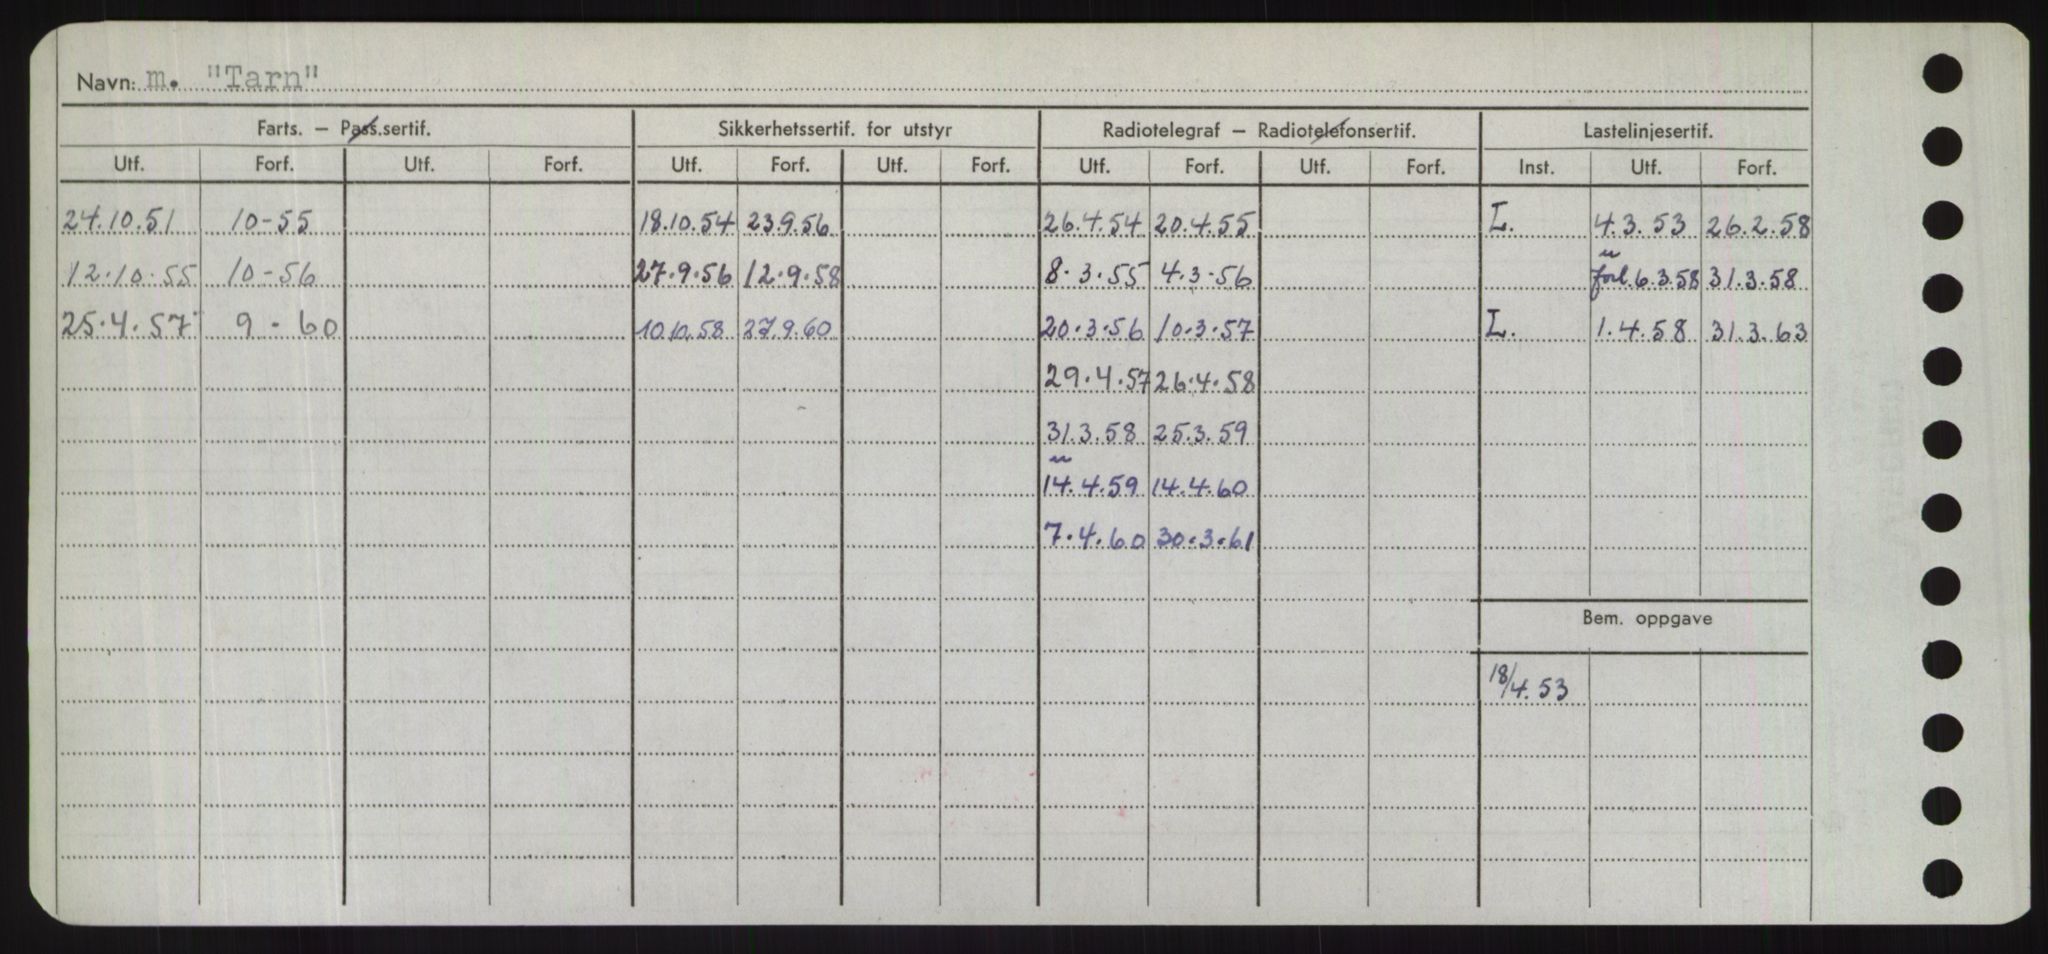 Navn: m. "Tarn"
Farts. – Pass.sertif. Sikkerhetssertif. for utstyr Radiotelegraf – Radiotelefonsertif. Lastelinjesertif.
Utf. Forf. Utf. Forf. Utf. Forf. Utf. Forf. Utf. Forf. Utf. Forf. Inst. Utf. Forf.
24.10.51 10-55 18.10.54 23.9.56 26.4.54 20.4.55 L. 4.3.53 26.2.58
12.10.55 10-56 27.9.56 12.9.58 8.3.55 4.3.56 forl. 6.3.58 31.3.58
25.4.57 9-60 10.10.58 27.9.60 20.3.56 10.3.57 L. 1.4.58 31.3.63
29.4.57 26.4.58
31.3.58 25.3.59
14.4.59 14.4.60
7.4.60 30.3.61
Bem. oppgave
18/4.53